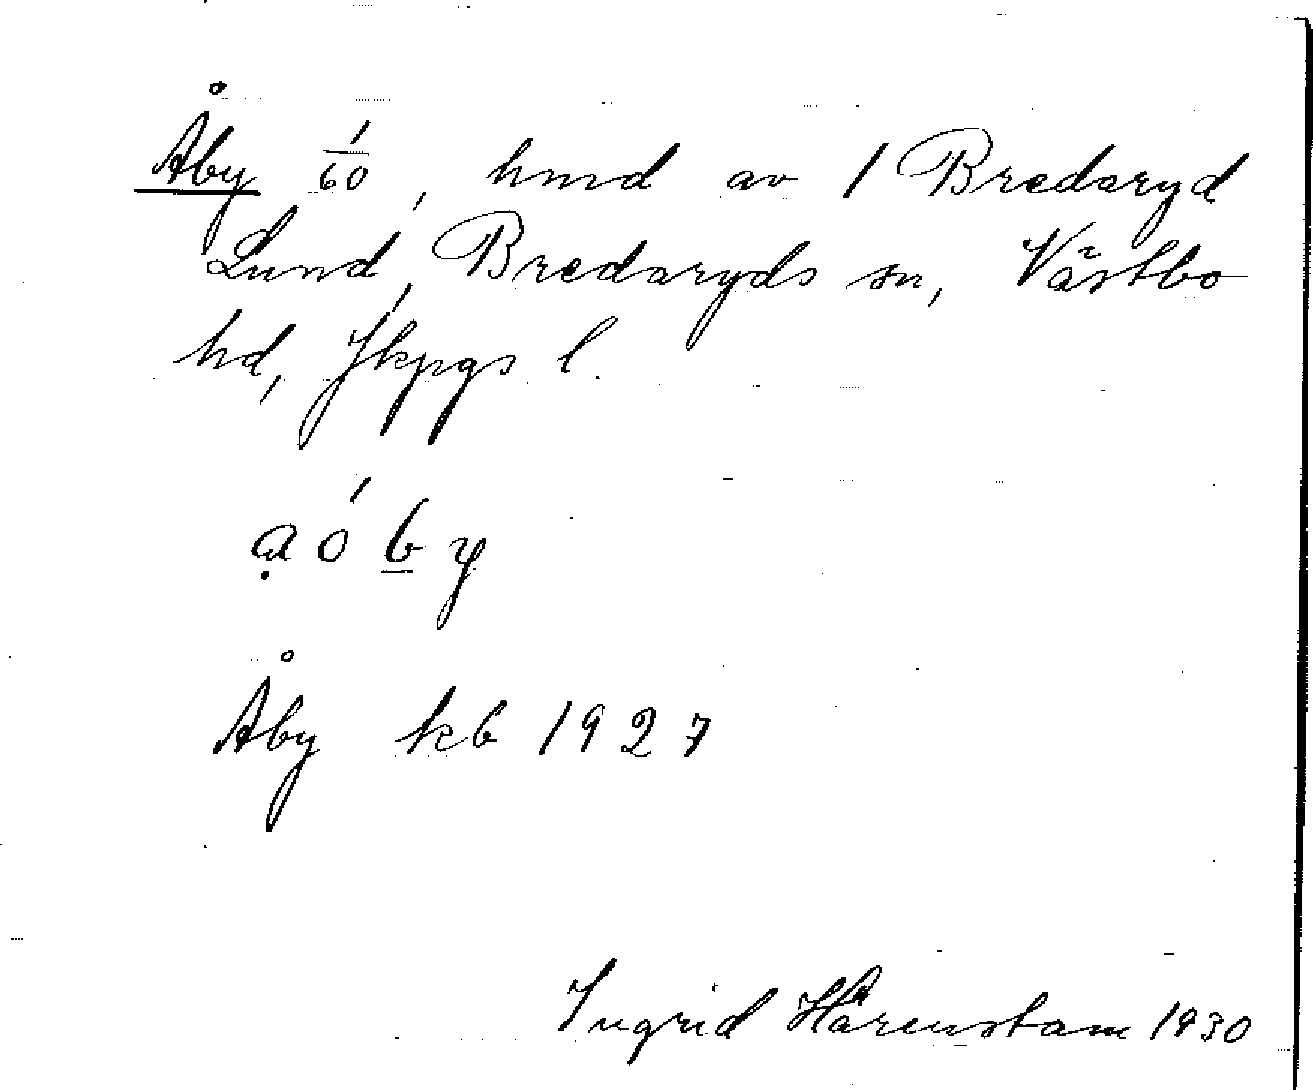 Åby 1/60, hmd av 1 Bredaryd
Lund, Bredaryds sn, Västbo
hd, Jkpgs l.
ạób̲y
Åby kb 1927
Ingrid Hårenstam 1930